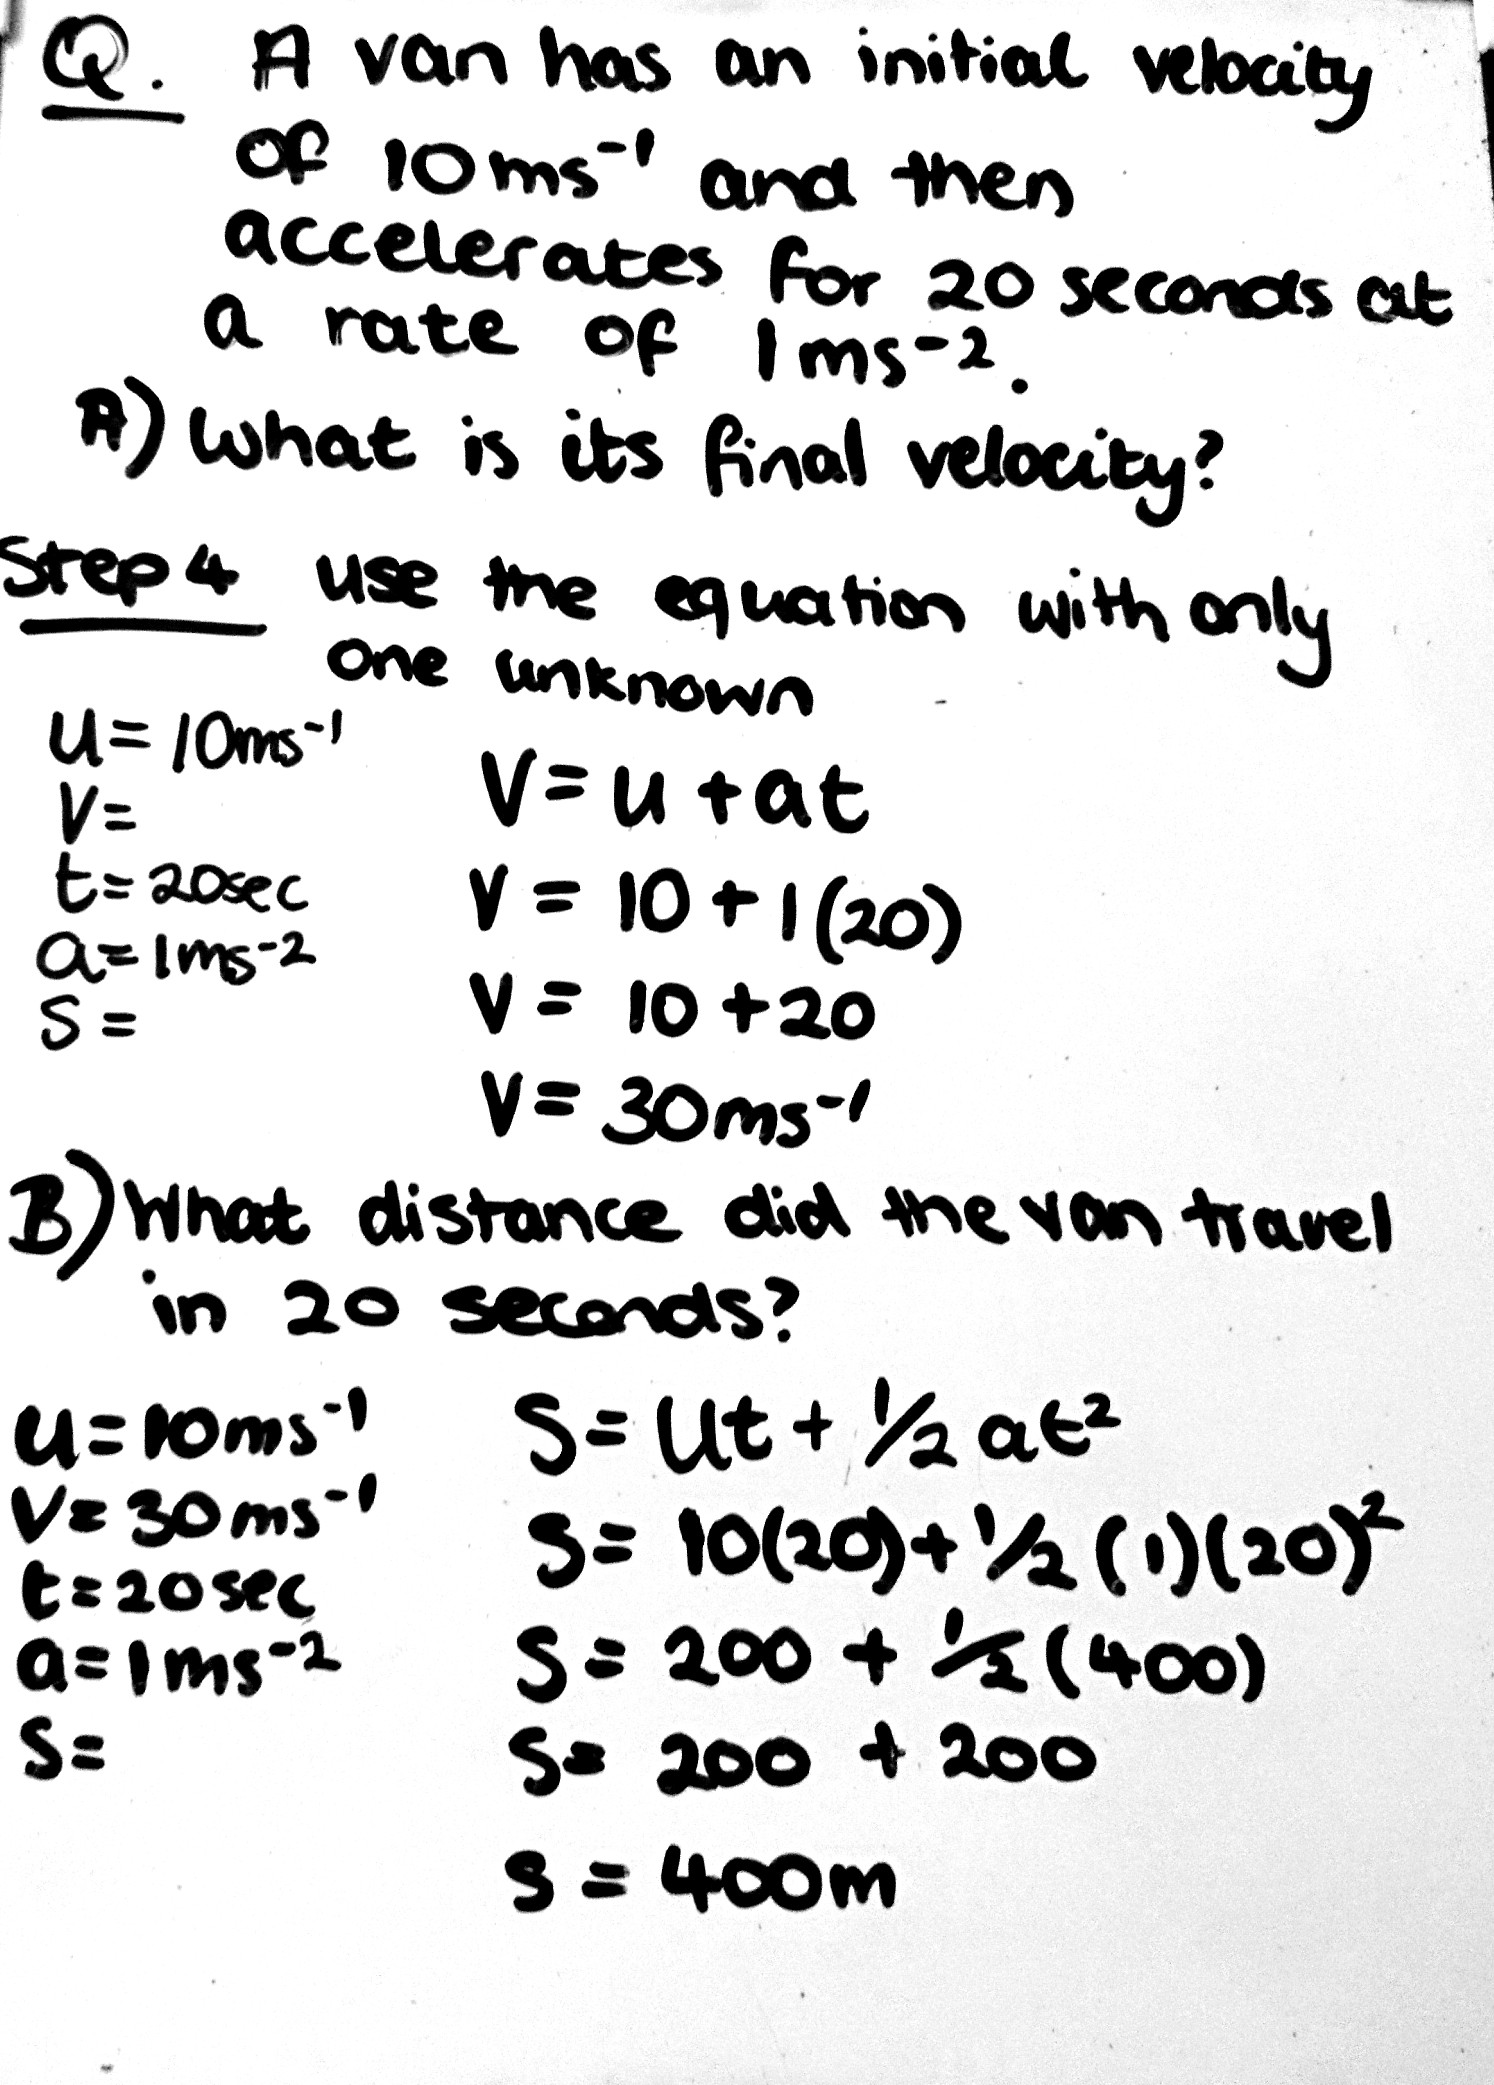 Q. A van has an initial velocity
of 10ms⁻¹ and then
accelerates for 20 seconds at
a rate of 1ms⁻².
A) What is its final velocity?
Step 4 use the equation with only
one unknown
u = 10ms⁻¹
V =
t = 20sec
a = 1ms⁻²
S =
V = u + at
V = 10 + 1(20)
V = 10 + 20
V = 30ms⁻¹
B) What distance did the van travel
in 20 seconds?
u = 10ms⁻¹
V = 30ms⁻¹
t = 20sec
a = 1ms⁻²
S =
S = Ut + ½ at²
S = 10(20) + ½ (1)(20)²
S = 200 + ½ (400)
S = 200 + 200
S = 400m